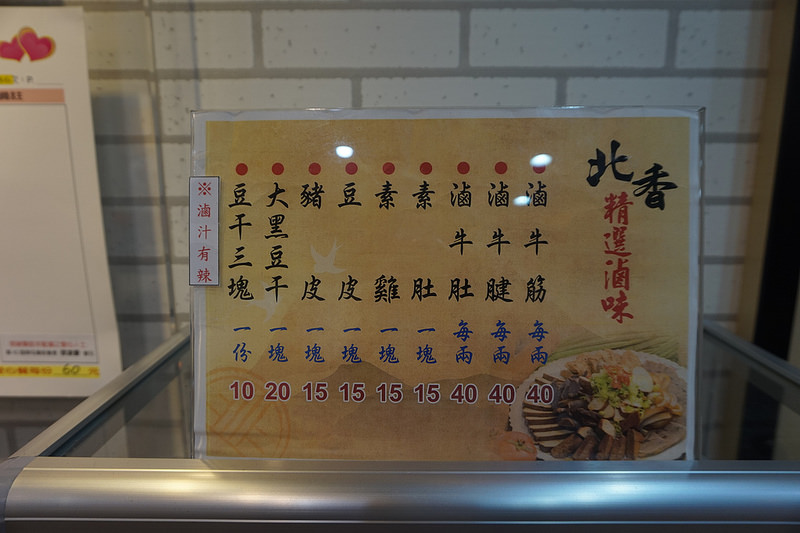 北香
精選滷味
滷牛筋 每兩 40
滷牛腱 每兩 40
滷牛肚 每兩 40
素肚 一塊 15
素雞 一塊 15
豆皮 一塊 15
豬皮 一塊 15
大黑豆干 一塊 20
豆干三塊 一份 10
※滷汁有辣
60 元